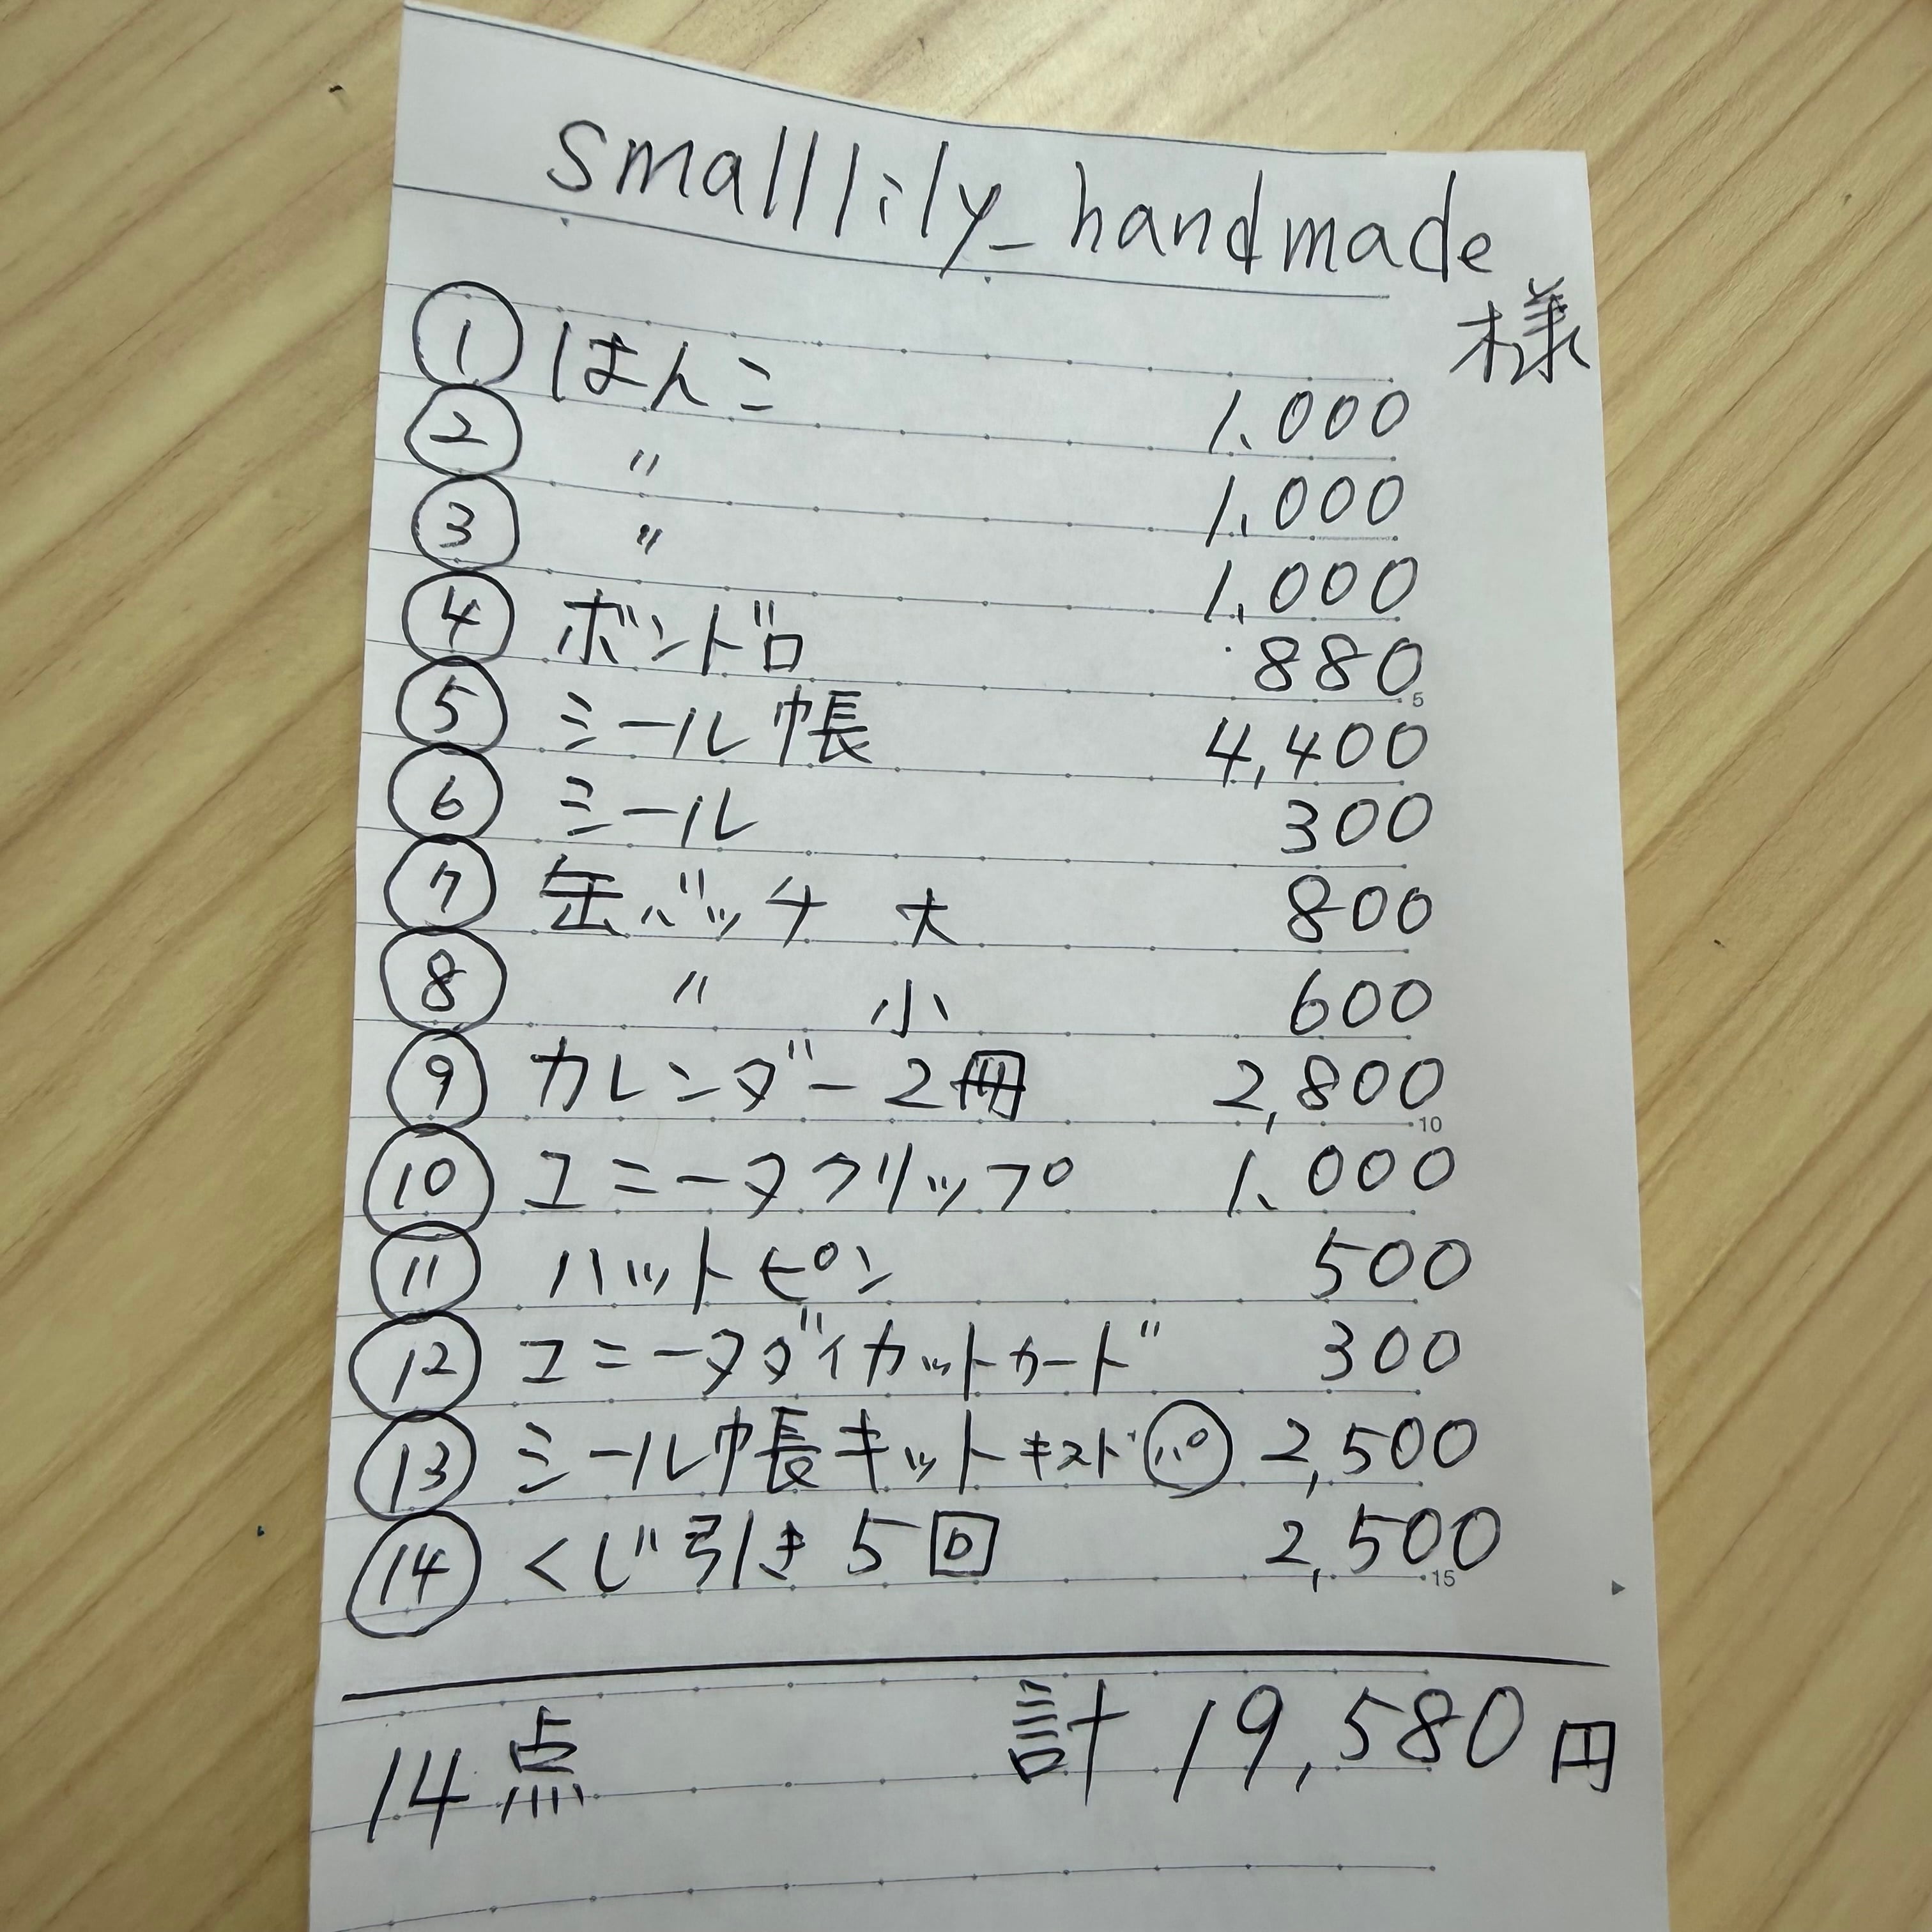 smalllily_handmade
様
① はんこ 1,000
② 〃 1,000
③ 〃 1,000
④ ボンドロ 880
5
⑤ シール帳 4,400
⑥ シール 300
⑦ 缶バッチ 大 800
⑧ 〃 小 600
⑨ カレンダー2冊 2,800
10
⑩ ユニークリップ 1,000
⑪ ハットピン 500
⑫ ユニータダイカットカード 300
⑬ シール帳キットキストド㋩゜ 2,500
⑭ くじ引き 5回 2,500
15
14点 計 19,580円